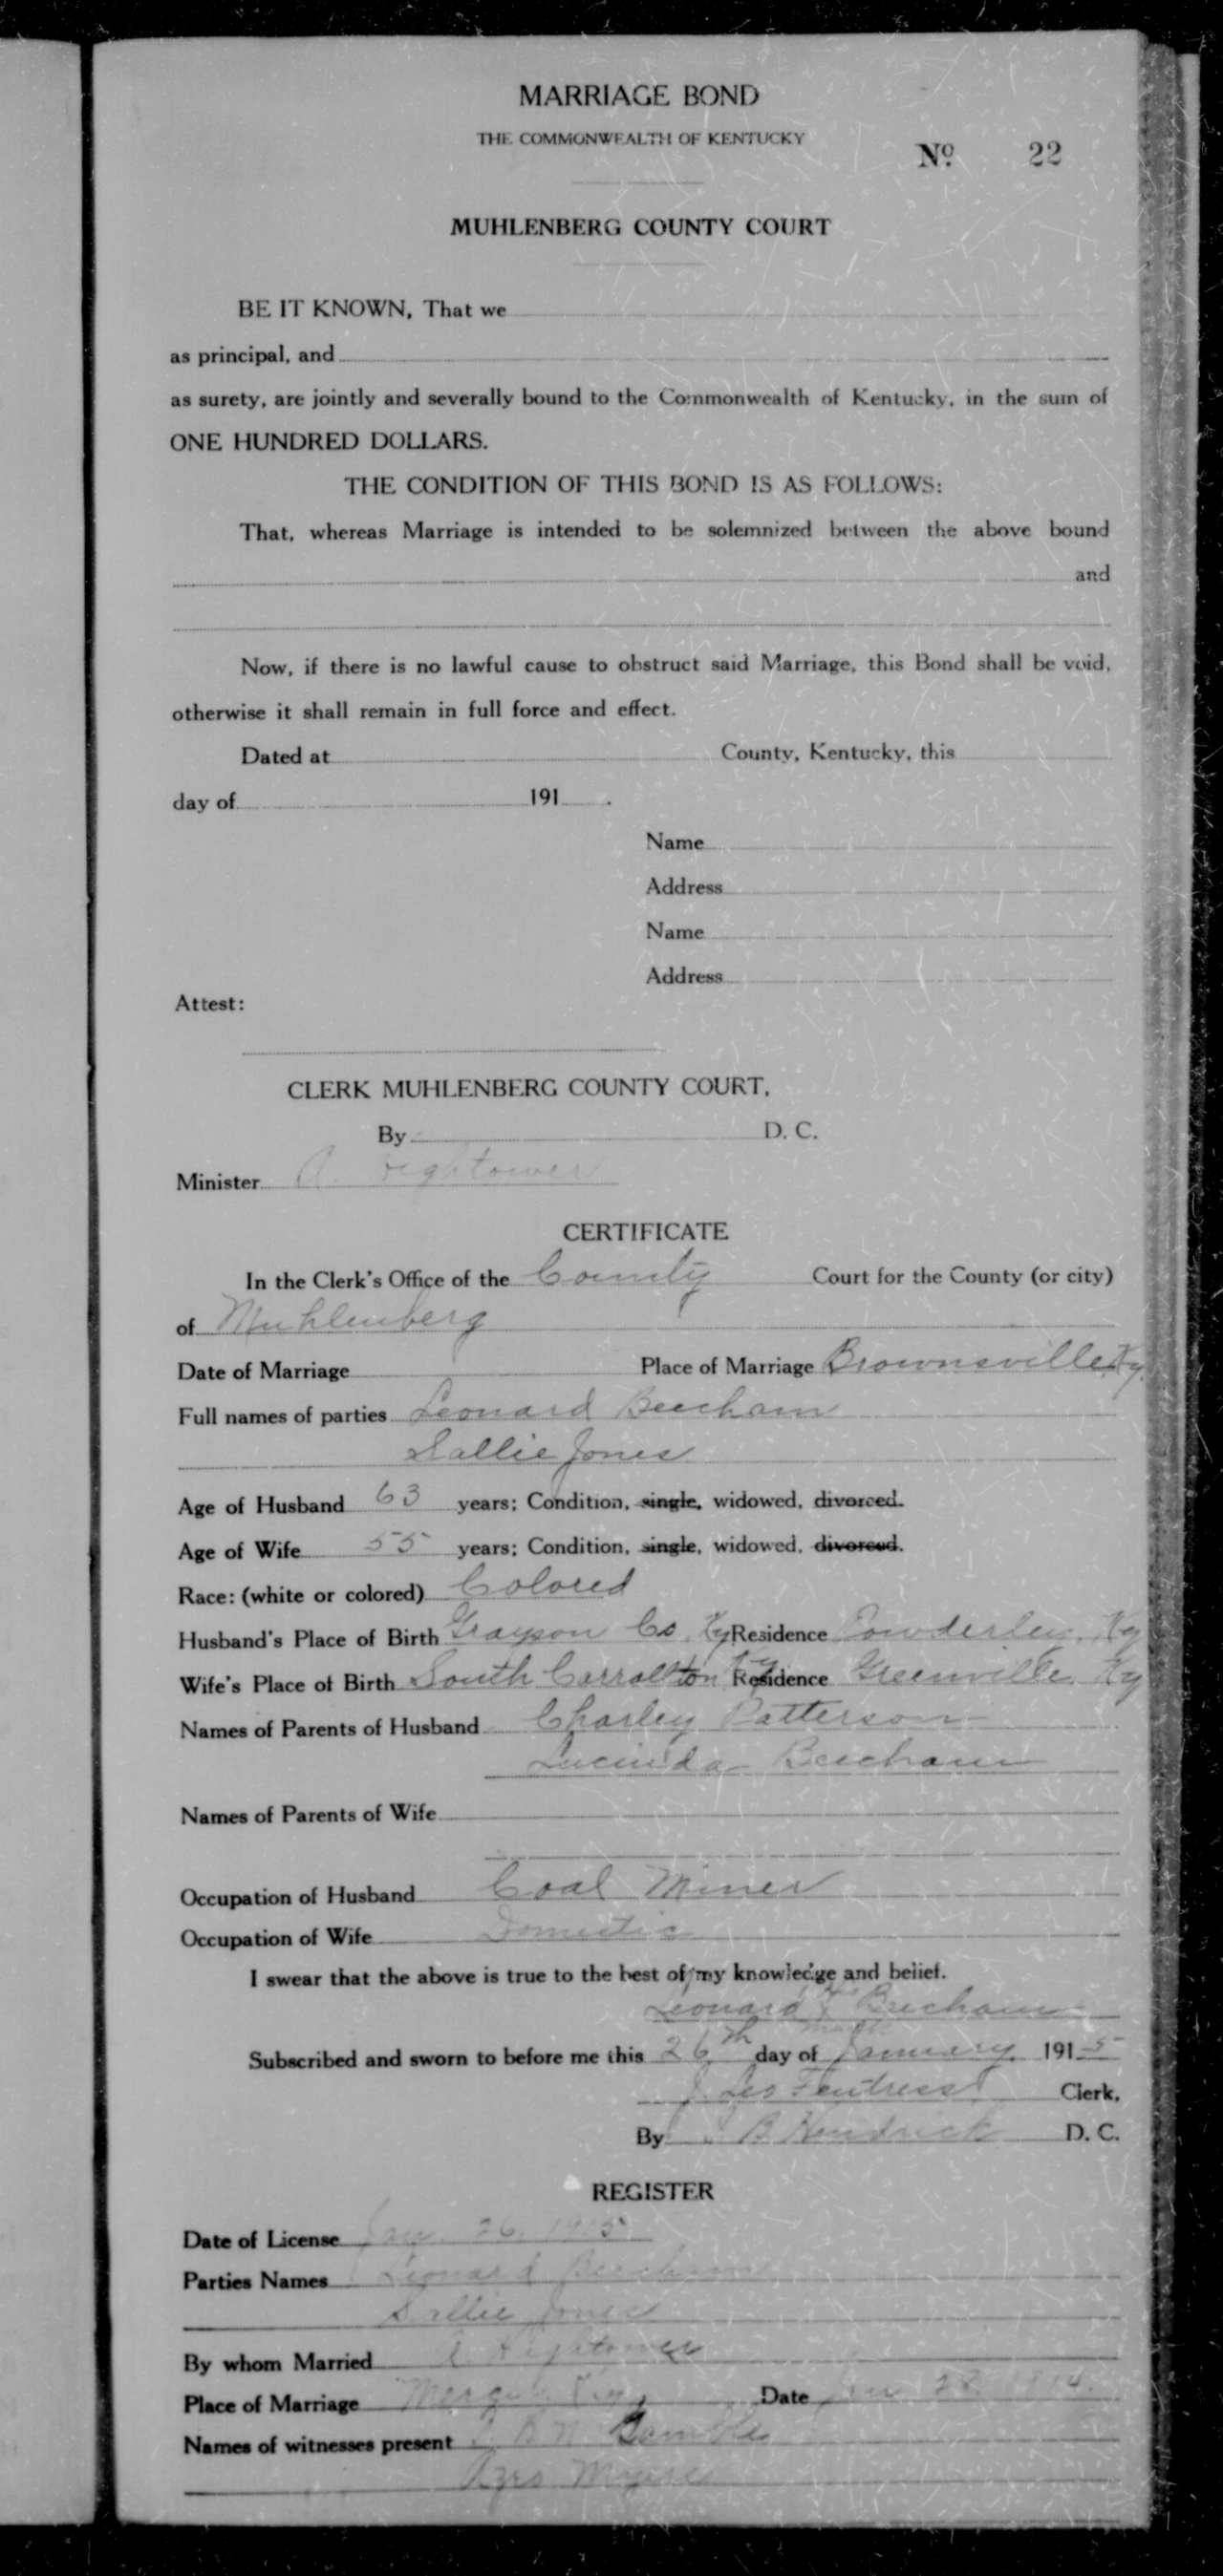 MARRIAGE BOND
THE COMMONWEALTH OF KENTUCKY
No. 22
MUHLENBERG COUNTY COURT
BE IT KNOWN, That we
as principal, and
as surety, are jointly and severally bound to the Commonwealth of Kentucky, in the sum of
ONE HUNDRED DOLLARS.
THE CONDITION OF THIS BOND IS AS FOLLOWS:
That, whereas Marriage is intended to be solemnized between the above bound
and
Now, if there is no lawful cause to obstruct said Marriage, this Bond shall be void,
otherwise it shall remain in full force and effect.
Dated at County, Kentucky, this
day of 191 .
Name
Address
Name
Address
Attest:
CLERK MUHLENBERG COUNTY COURT,
By D. C.
Minister A. Hightower
CERTIFICATE
In the Clerk's Office of the County Court for the County (or city)
of Muhlenberg
Date of Marriage Place of Marriage Brownsville Ky.
Full names of parties Leonard Beecham
Sallie Jones
Age of Husband 63 years; Condition, single, widowed, divorced.
Age of Wife 55 years; Condition, single, widowed, divorced.
Race: (white or colored) Colored
Husband's Place of Birth Grayson Co. Ky Residence Powderley, Ky
Wife's Place of Birth South Carrollton Ky Residence Greenville Ky
Names of Parents of Husband Charley Patterson
Lucinda Beecham
Names of Parents of Wife
Occupation of Husband Coal Miner
Occupation of Wife Domestic
I swear that the above is true to the best of my knowledge and belief.
Leonard X Beecham
Subscribed and sworn to before me this 26th day of January 1915
J. Leo Fentress Clerk.
By B. Kendrick D. C.
REGISTER
Date of License Jan. 26. 1915
Parties Names Leonard Beecham
Sallie Jones
By whom Married A. Hightower
Place of Marriage Ky. Date Jan 28
Names of witnesses present
Myers